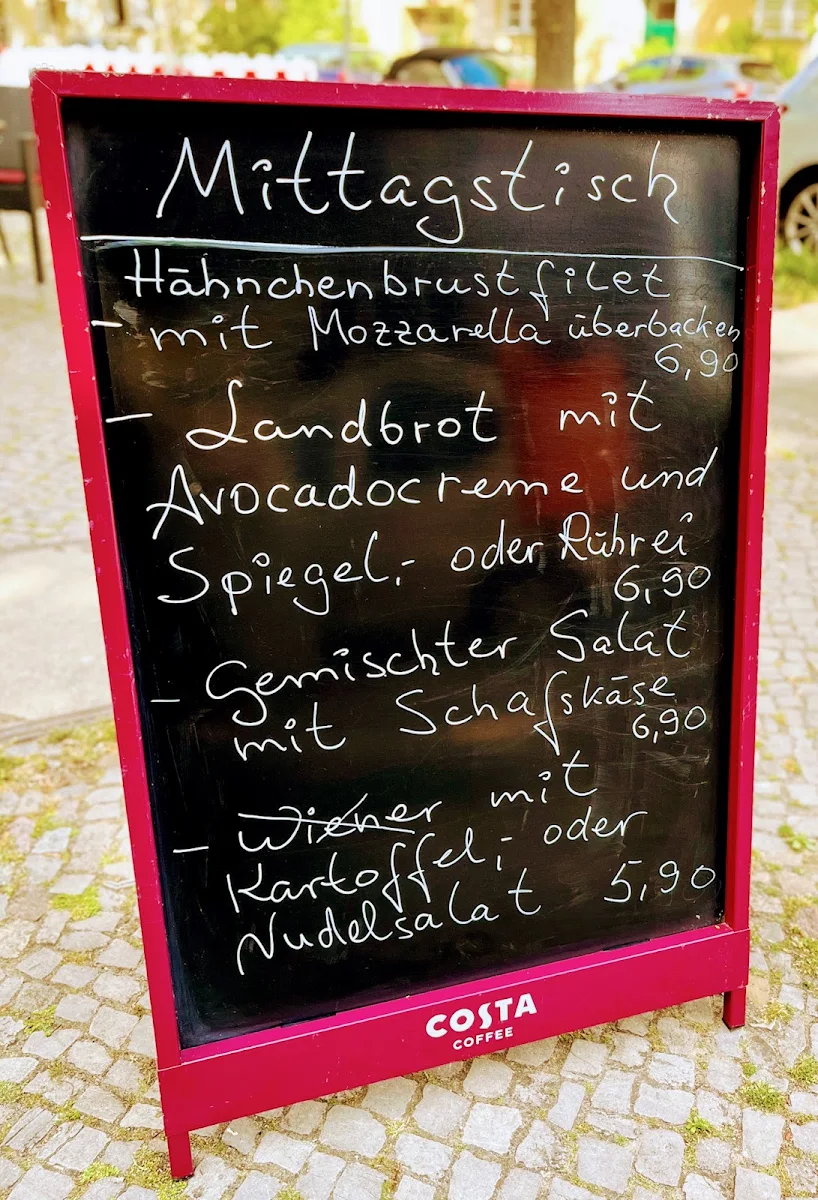 Mittagstisch
Hähnchenbrustfilet
- mit Mozzarella überbacken
6,90
- Landbrot mit
Avocadocreme und
Spiegel,- oder Rührei
6,90
- Gemischter Salat
mit Schafskäse
6,90
- Wiener mit
Kartoffel,- oder
Nudelsalat 5,90
COSTA
COFFEE